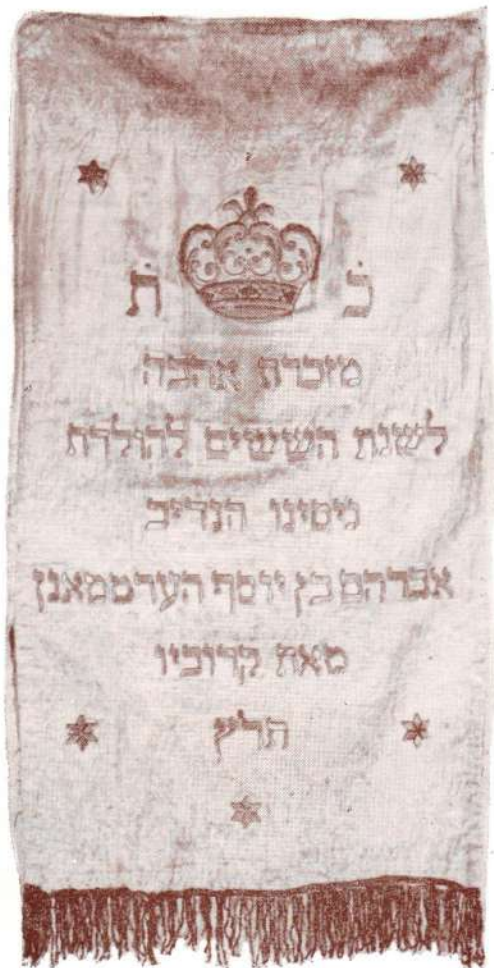 כֹ תֹ
מזכרת אהבה
לשנת הששים להולדת
גיסינו הנדיב
אברהם בן יוסף הערטמאנן
מאת קרוביו
תרלץ